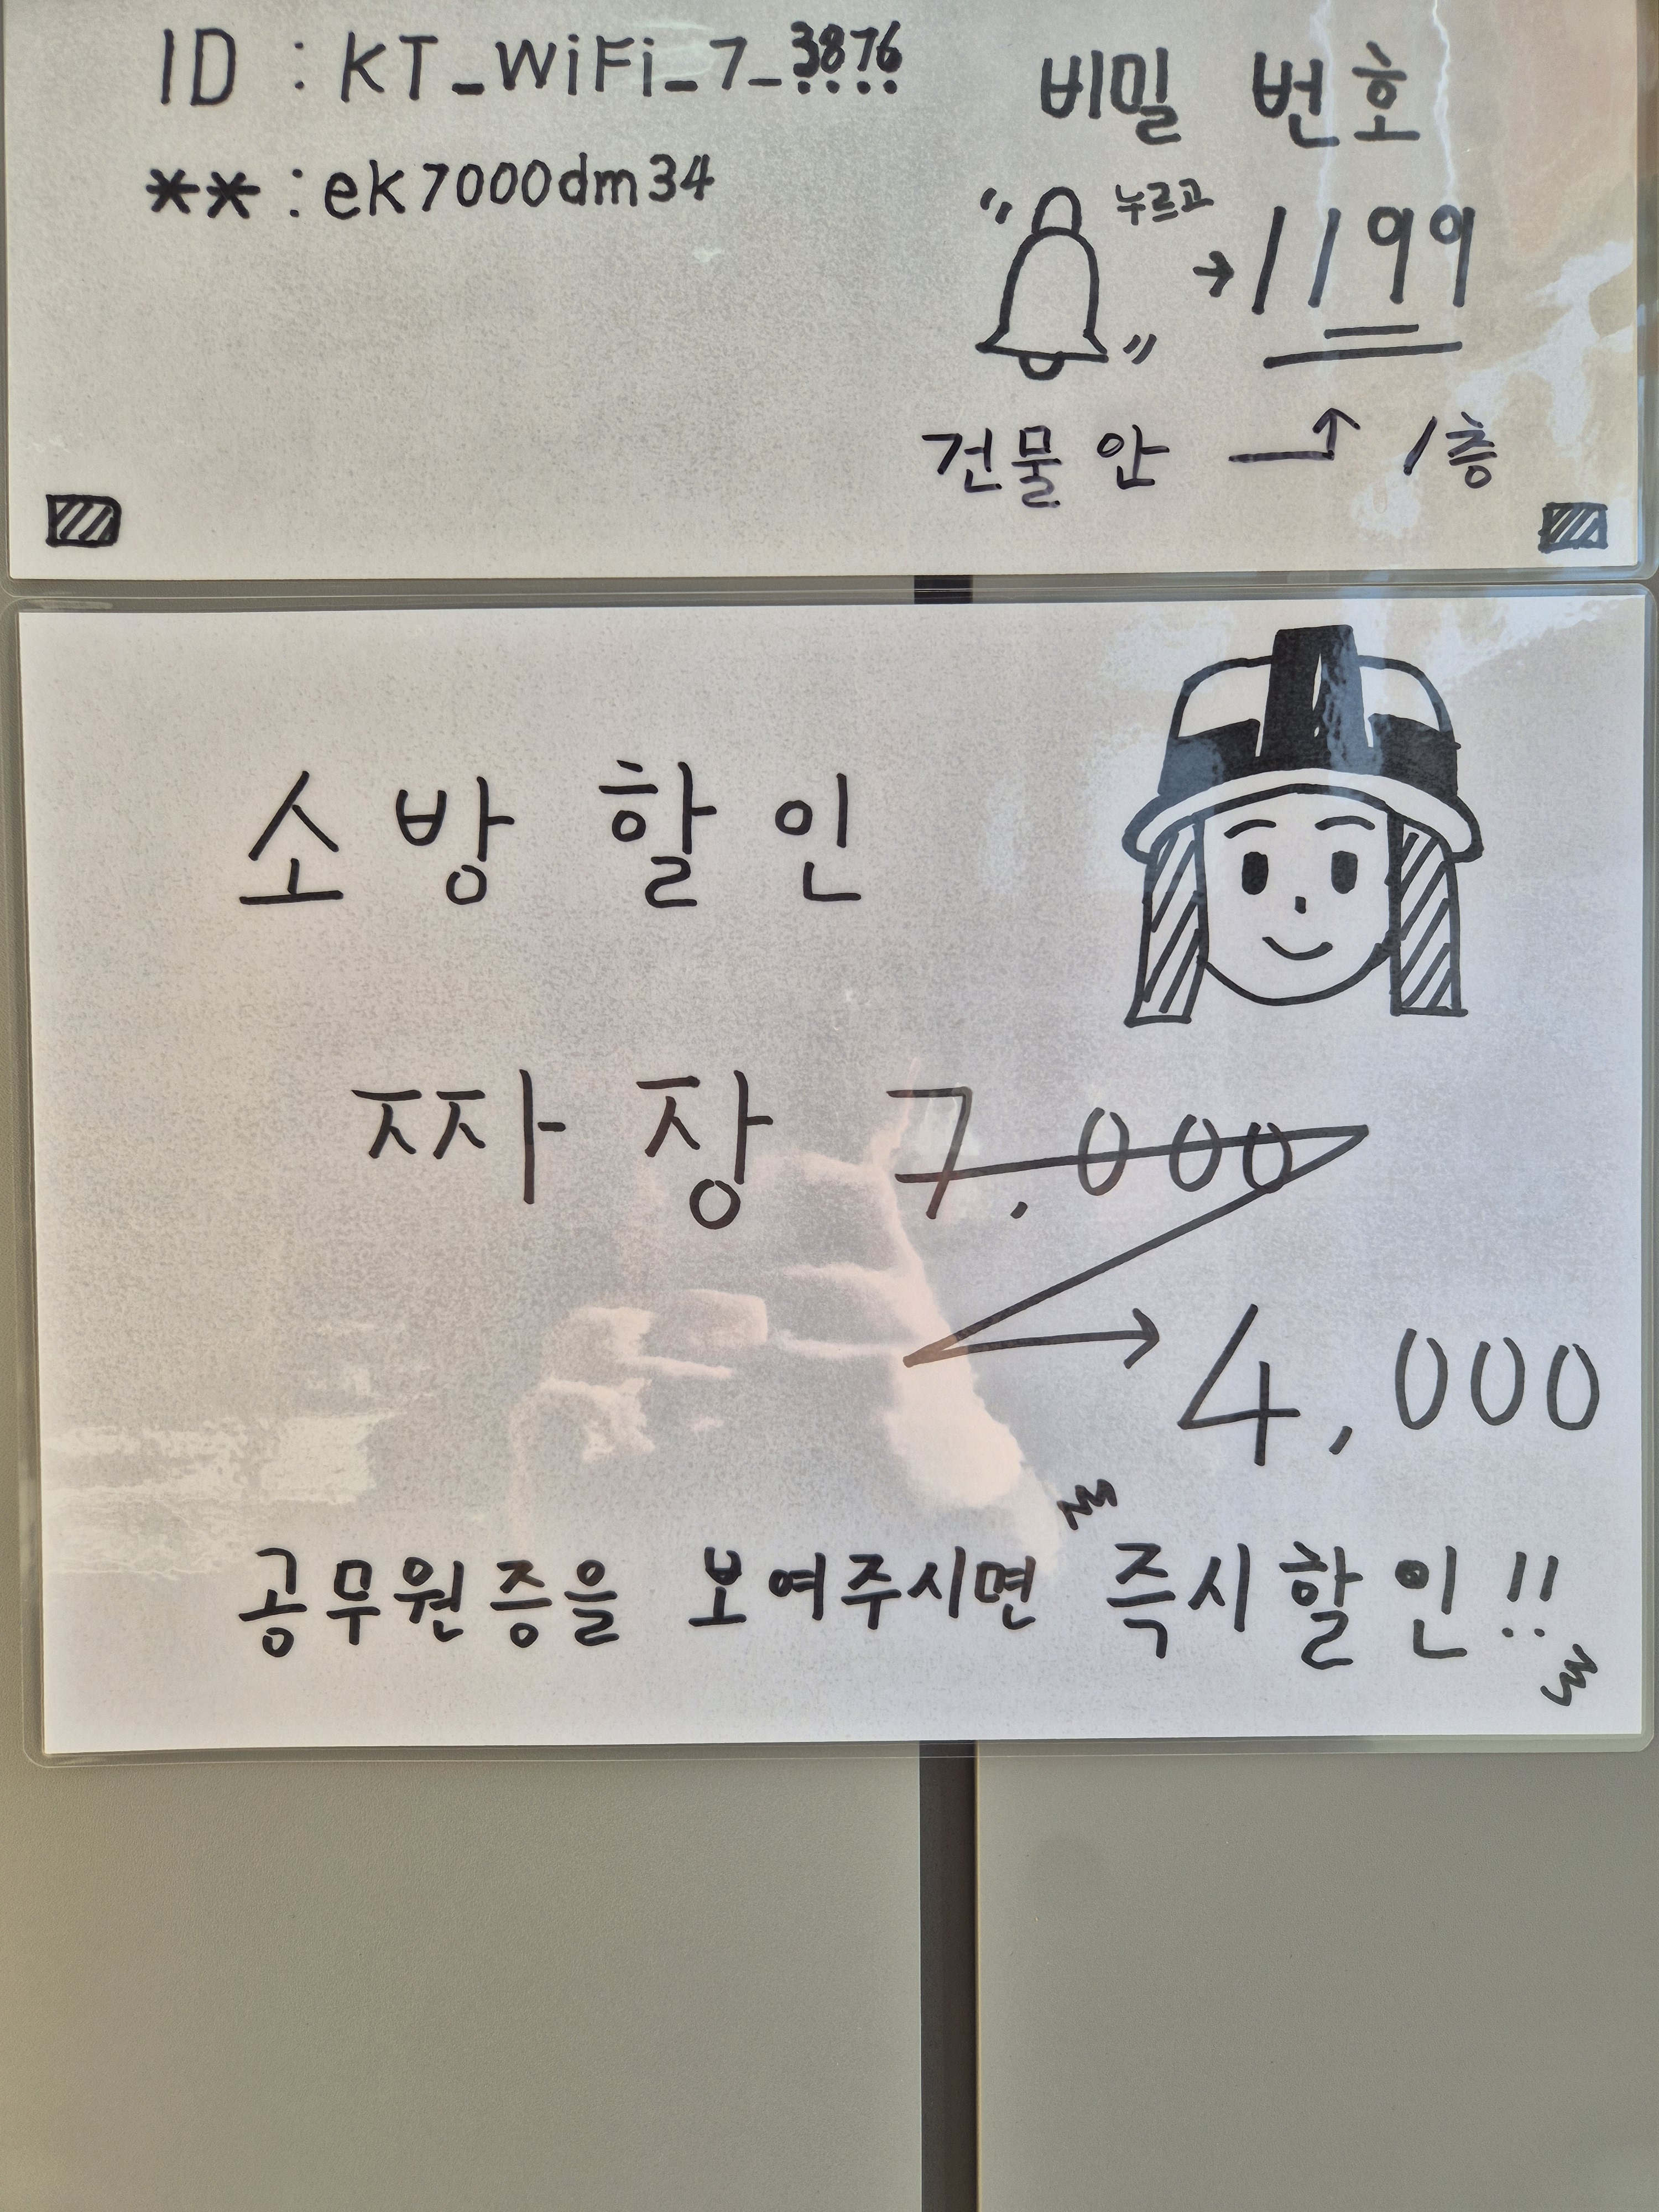 ID : KT_WiFi_7_3876
** : ek7000dm34
비밀 번호
누르고
→ 1199
건물 안 → 1층
소방 할인
짜장 7,000
→ 4,000
공무원증을 보여주시면 즉시할인!!